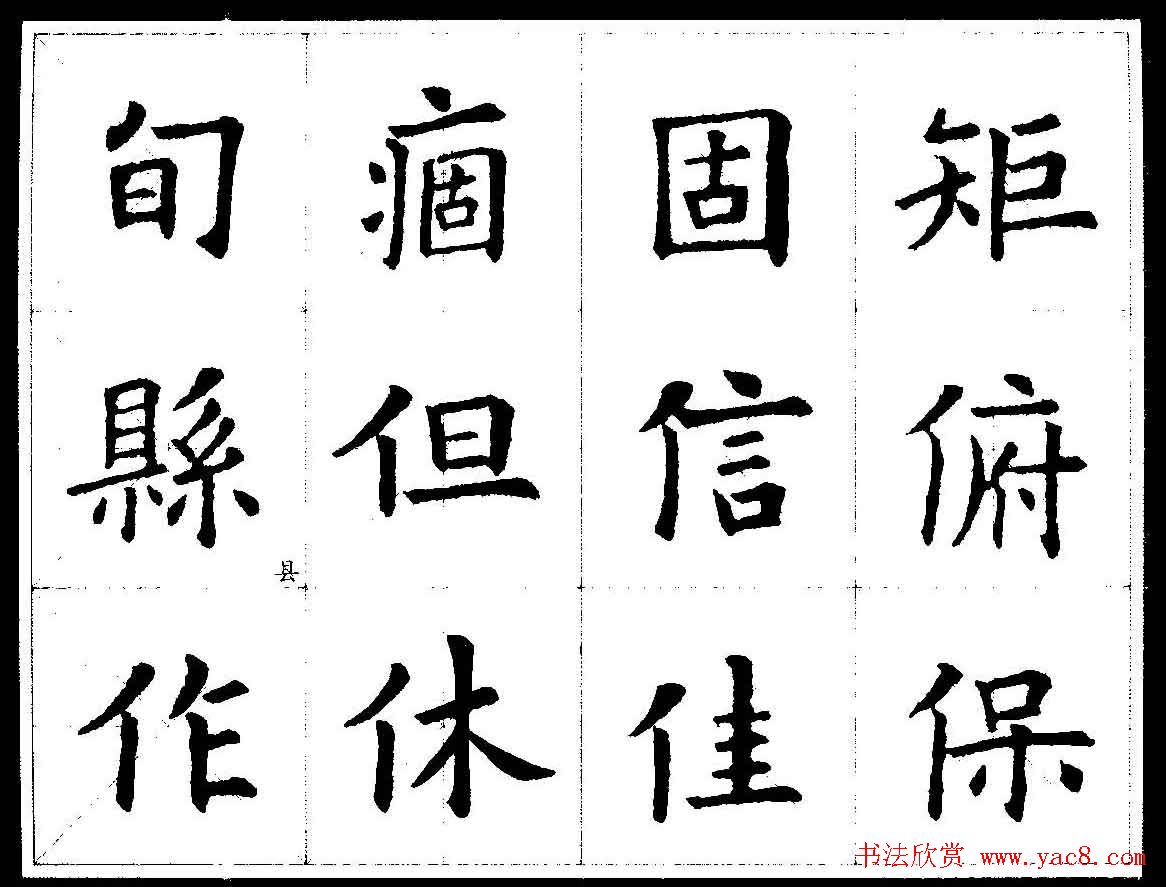 旬痼固矩
縣但信俯
县
作休佳保
书法欣赏 www.yac8.com